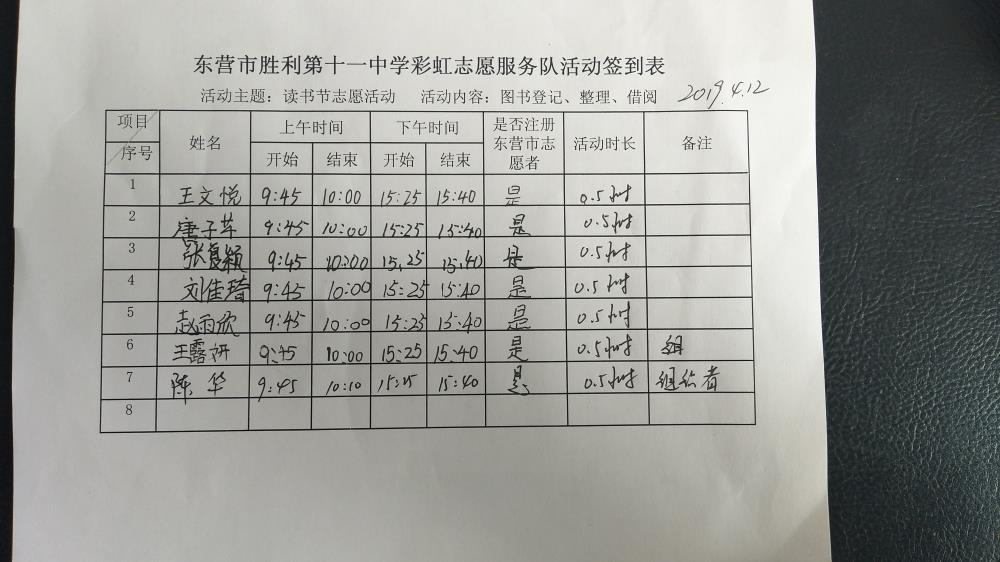 东营市胜利第十一中学彩虹志愿服务队活动签到表
活动主题：读书节志愿活动 活动内容：图书登记、整理、借阅 2019.4.12
项目 序号 姓名 上午时间 下午时间 是否注册东营市志愿者 活动时长 备注
开始 结束 开始 结束
1 王文悦 9:45 10:00 15:25 15:40 是 0.5小时
2 唐子苹 9:45 10:00 15:25 15:40 是 0.5小时
3 张复颖 9:45 10:00 15:25 15:40 是 0.5小时
4 刘佳琦 9:45 10:00 15:25 15:40 是 0.5小时
5 赵雨欣 9:45 10:00 15:25 15:40 是 0.5小时
6 王露妍 9:45 10:00 15:25 15:40 是 0.5小时
7 陈华 9:45 10:10 15:25 15:40 是 0.5小时 组织者
8